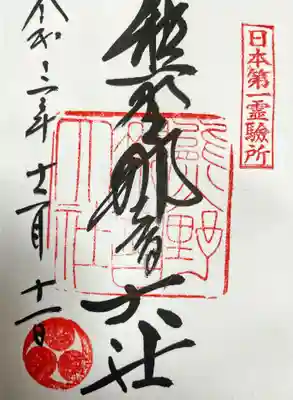 日本第一霊驗所
熊野那智大社
熊野
那智
大社
令和三年十二月十一日